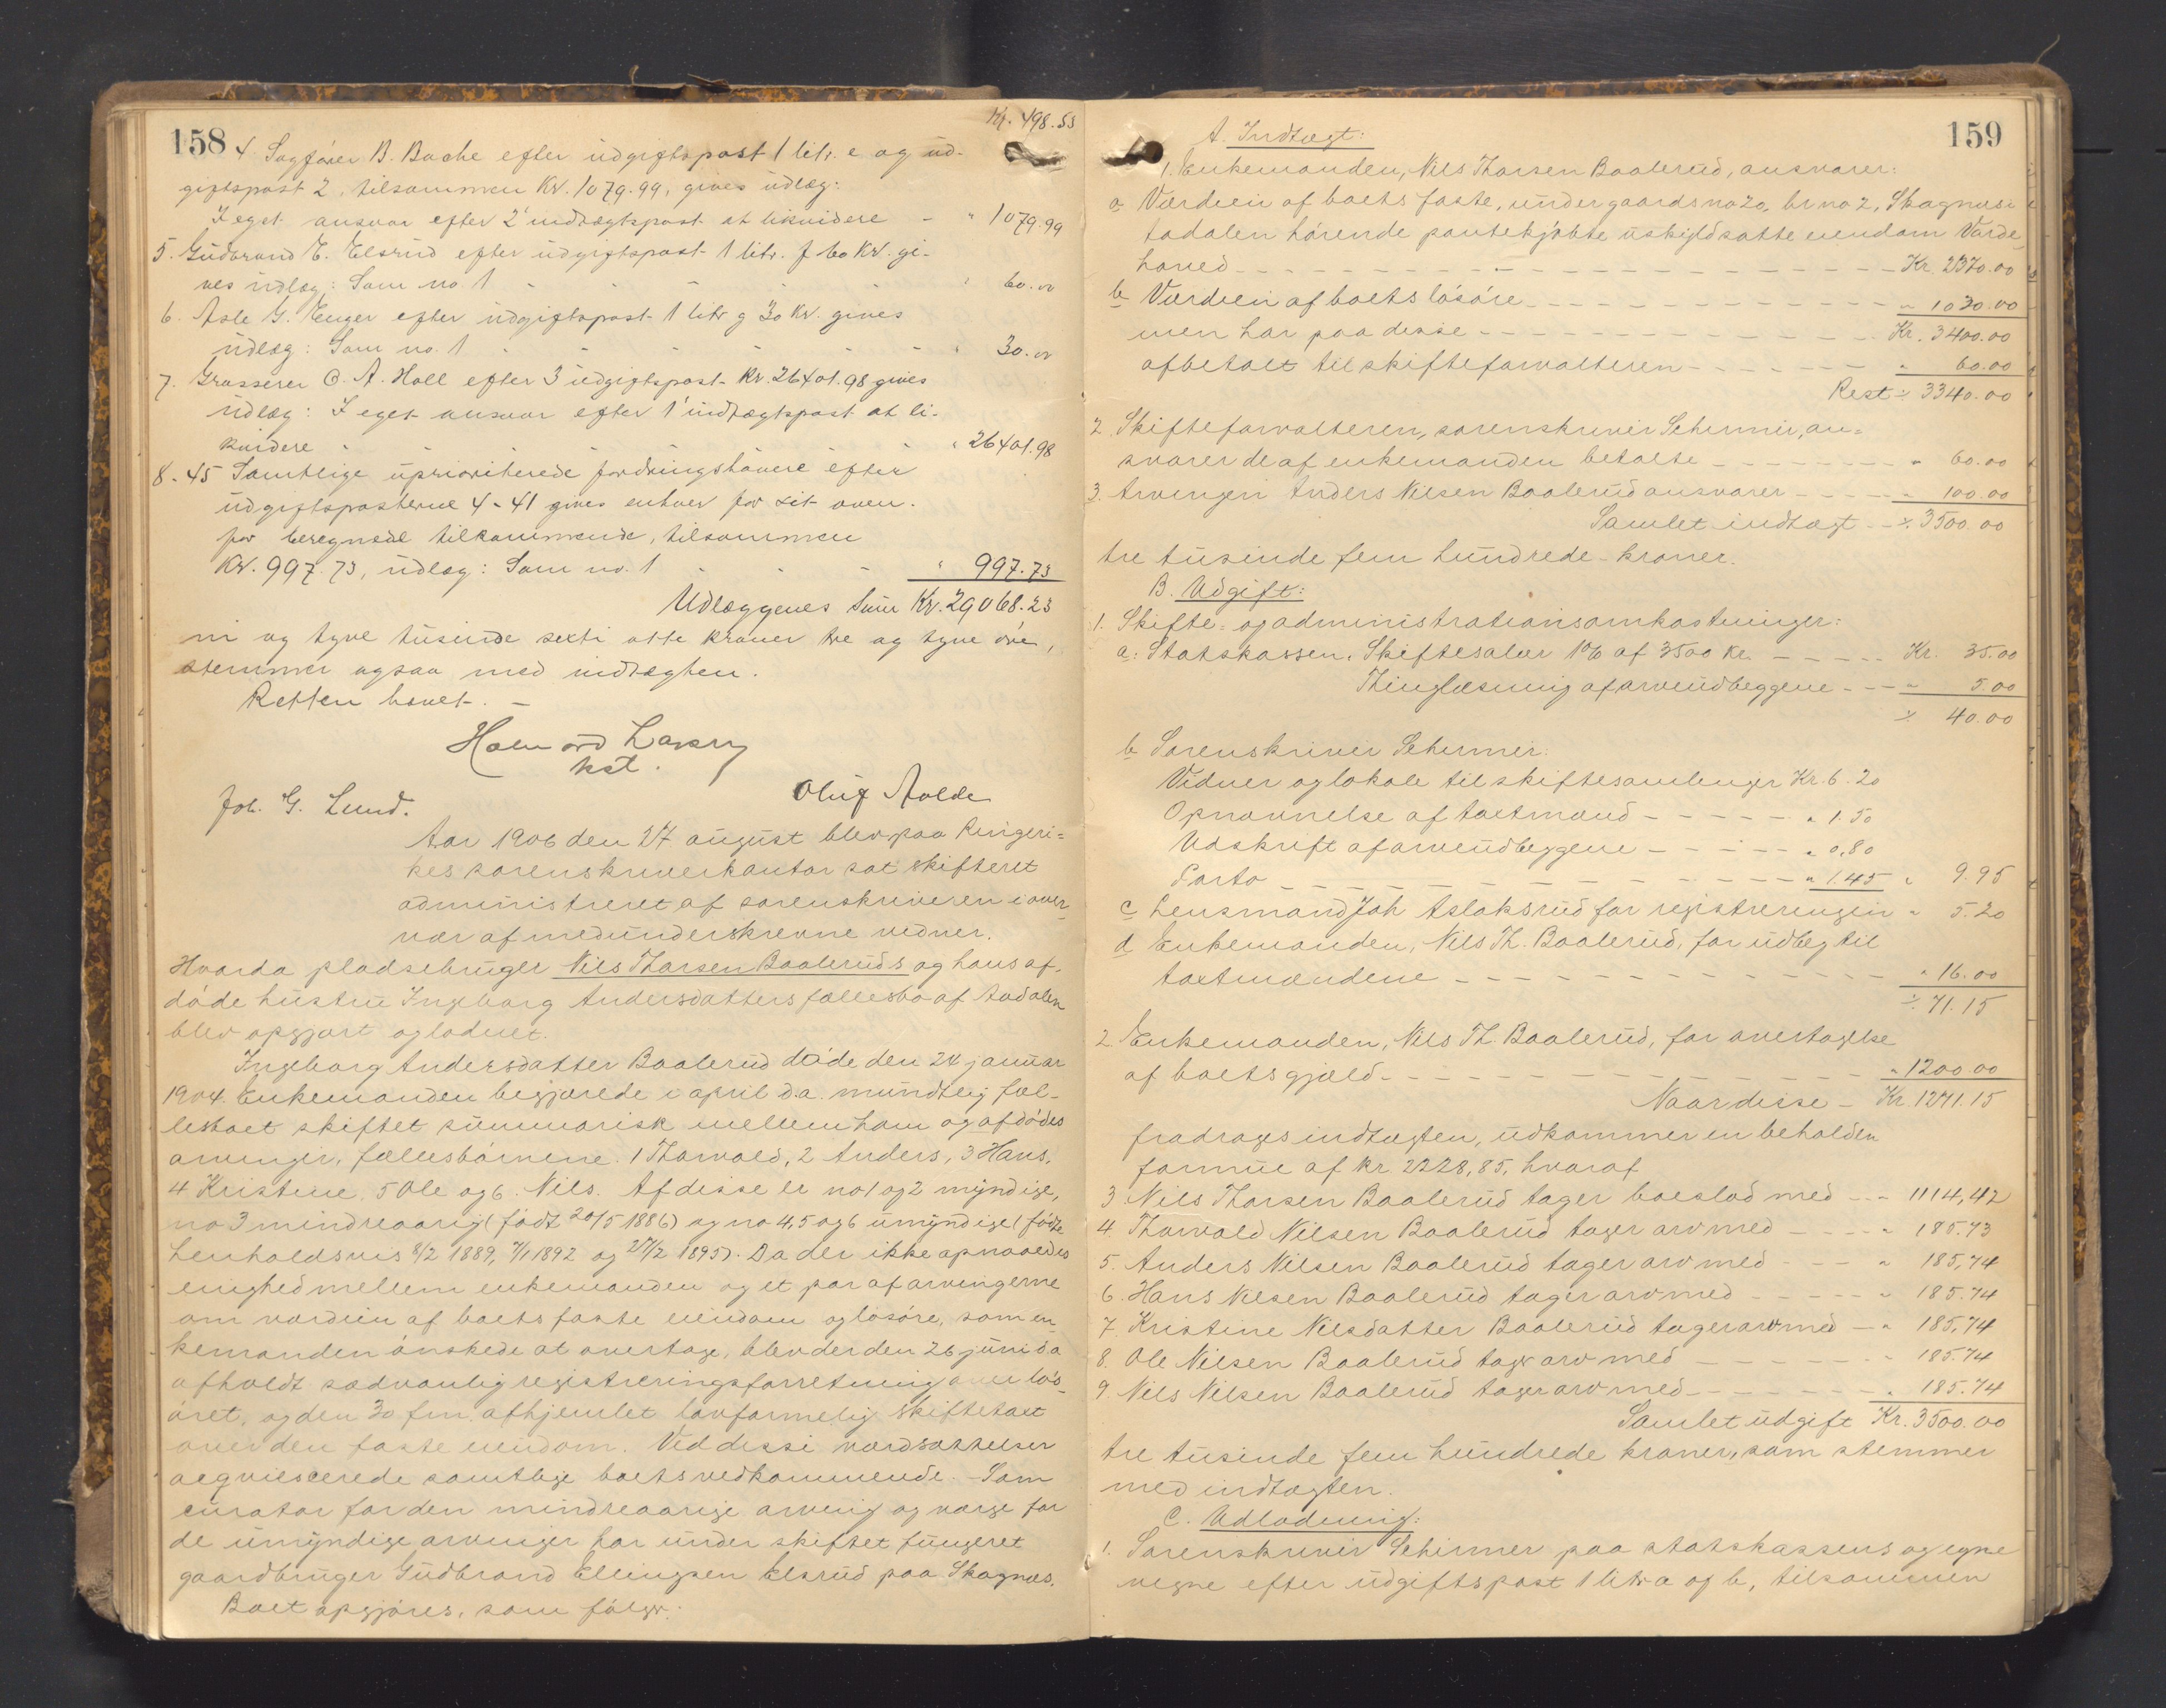 158
Kr. 498.53
4. Sagfører B. Bache efter udgiftspost 1 litr. e og ud-
giftspost 2, tilsammen Kr. 1079.99, gives udlæg:
I eget ansvar efter 2' indtægtspost at likvidere - " 1079.99
5. Gudbrand E. Elsrud efter udgiftspost 1 litr. f 60 Kr. gi-
ves udlæg: Som no 1 " 60.00
6. Asle G. Enger efter udgiftspost 1 litr g 30 Kr. gives
udlæg: Som no. 1 " 30.00
7. Grosserer O. A. Holl efter 3' udgiftspost Kr. 26401.98 gives
udlæg: I eget ansvar efter 1' indtægtspost at li-
kvidere " 26401.98
8-45 Samtlige uprioriterede fordringshavere efter
udgiftsposterne 4-41 gives enhver for sit oven-
for beregnede tilkommende, tilsammen
Kr. 997.73, udlæg: Som no. 1 " 997.73
Udlæggenes Sum Kr. 29068.23
ni og tyve tusinde sexti otte kroner tre og tyve øre,
stemmer ogsaa med indtægten.
Retten hævet. -
kst.
Joh. G. Lund. Oluf Aalde
Aar 1906 den 27 august blev paa Ringeri=
kes sorenskriverkontor sat skifteret
administreret af sorenskriveren i over-
vær af medunderskrevne vidner.
Hvorda pladsebruger Nils Thorsen Baaleruds og hans af-
døde hustru Ingeborg Andersdatters fællesbo af Aadalen
blev opgjort og lodnet.
Ingeborg Andersdatter Baalerud døde den 24 januar
1904. Enkemanden begjærede i april d.a. mundtlig fæl-
lesboet skiftet summarisk mellem ham og afdødes
arvinger, fællesbørnene. 1 Thorvald, 2 Anders, 3 Hans,
4 Kristine, 5 Ole og 6. Nils. Af disse er no 1 og 2 myndige,
no 3 mindreaarig (født 20/5 1886) og no 4, 5 og 6 umyndige (fødte
henholdsvis 8/2 1889, 7/1 1892 og 27/2 1895). Da der ikke opnaaedes
enighed mellem enkemanden og et par af arvingerne
om værdien af boets faste eiendom og løsøre, som en-
kemanden ønskede at overtage, blev der den 26 juni d.a
afholdt sædvanlig registreringsforretning over løs-
øret, og den 30 f.m. afhjemlet lovformelig skiftetaxt
over den faste eiendom. Ved disse værdsættelser
acqviescerede samtlige boets vedkommende. - Som
curator for den mindreaarige arving og værge for
de umyndige arvinger har under skiftet fungeret
gaardbruger Gudbrand Ellingsen Elsrud paa Skagnæs.
Boet opgjøres, som følger:
159
A. Indtægt:
1. Enkemanden, Nils Thorsen Baalerud, ansvarer:
a Værdien af boets faste, under gaardsno 20, brno 2, Skagnæs i
Aadalen hørende pantekjøbte uskyldsatte eiendom Varde-
hoved - - - Kr. 2370.00
b Værdien af boets løsøre - - - " 1030.00
men har paa disse - - - Kr. 3400.00
afbetalt til skifteforvalteren - - - " 60.00
Rest " 3340.00
2. Skifteforvalteren, sorenskriver Schirmer, an=
svarer de af enkemanden betalte - - - " 60.00
3. Arvingen Anders Nilsen Baalerud ansvarer - - - " 100.00
Samlet indtægt - " 3500.00
tre tusinde fem hundrede kroner.
B. Udgift:
1. Skifte- og administrationsomkostninger:
a: Statskassen: Skiftesalær 1% af 3500 Kr. - - - Kr. 35.00
Thinglæsning af arveudlæggene - - " 5.00
" 40.00
b Sorenskriver Schirmer:
Vidner og lokale til skiftesamlinger Kr. 6.20
Opnævnelse af taxtmænd - - - " 1.50
Udskrift af arveudlæggene - - - " 0,80
Porto - - - " 1.45 " 9.95
c Lensmand Joh Aslaksrud for registreringen " 5.20
d Enkemanden, Nils Th. Baalerud, for udlæg til
taxtmændene - - - " 16.00
" 71.15
2 Enkemanden, Nils Th. Baalerud, for overtagelse
af boets gjæld - - - " 1200.00
Naar disse - Kr. 1271.15
fradrages indtægten, udkommer en beholden
formue af Kr. 2228,85, hvoraf
3 Nils Thorsen Baalerud tager boeslod med - - " 1114,42
4. Thorvald Nilsen Baalerud tager arv med - - - " 185.73
5. Anders Nilsen Baalerud tager arv med - - - " 185,74
6. Hans Nilsen Baalerud tager arv med - - - " 185.74
7. Kristine Nilsdatter Baalerud tager arv med - " 185,74
8. Ole Nilsen Baalerud tager arv med - - - " 185.74
9. Nils Nilsen Baalerud tager arv med - - - " 185.74
Samlet udgift Kr. 3500.00
tre tusinde fem hundrede kroner, som stemmer
med indtægten.
C. Udlodning:
1. Sorenskriver Schirmer paa statskassens og egne
vegne efter udgiftspost 1 litr a og b, tilsammen